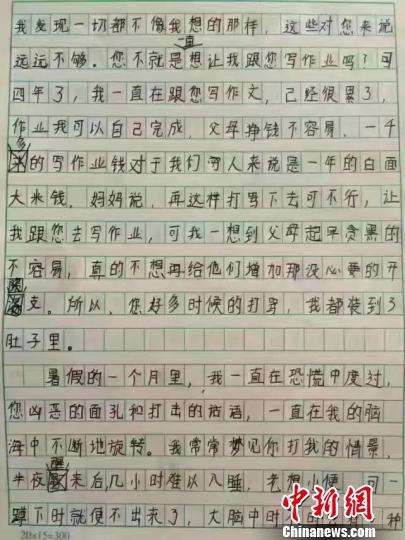 我发现一切都不像我想的那样，这些对您来说
一直
远远不够。您不就是想让我跟您写作业吗？可
四年了，我一直在跟您写作文，已经很累了，
作业我可以自己完成，父母挣钱不容易，一千
多
的写作业钱对于我们穷人来说是一年的白面
大米钱，妈妈说，再这样打骂下去可不行，让
我跟您去写作业，可我一想到父母起早贪黑的
不容易，真的不想再给他们增加那没必要的开
支。所以，您好多时候的打骂，我都装到了
肚子里。
暑假的一个月里，我一直在恐慌中度过，
您凶恶的面孔和打击的话语，一直在我的脑
海中不断地旋转。我常常梦见你打我的情景，
醒
半夜来后几小时难以入睡，老想小便，可一
蹲下时就便不出来了，大脑中时
种
20×15=300
中新网
Chinanews.com